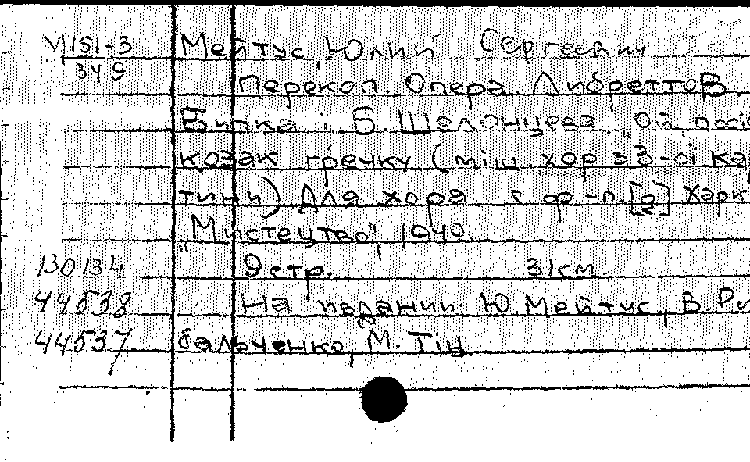 М 151-3 Мейтус, Юлий Сергеевич
349
Перекоп. Опера Либретто В.
Битка і Б. Шелонцева "Ой
козак гречку (міш. хор з 3-ої ка
тини) Для хора с ф-п. [а] Харк
"Мистецтво", 1940.
130134 9 стр. 31 см
44538 На издании: Ю. Мейтус, В. Ри
44537 бальченко, М. Тіц